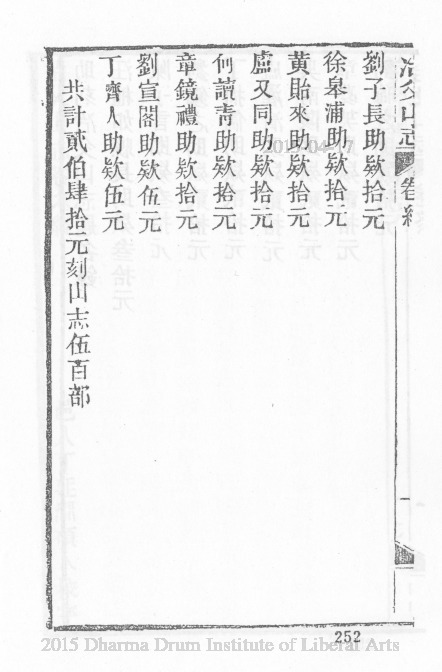 山志 卷終
劉子長助欵拾元
徐皋浦助欵拾元
黃貽來助欵拾元
盧又同助欵拾元
何讀青助欵拾元
章鏡禮助欵拾元
劉宣閣助欵伍元
丁齊人助欵伍元
共計貳伯肆拾元刻山志伍百部
252
2015 Dharma Drum Institute of Liberal Arts